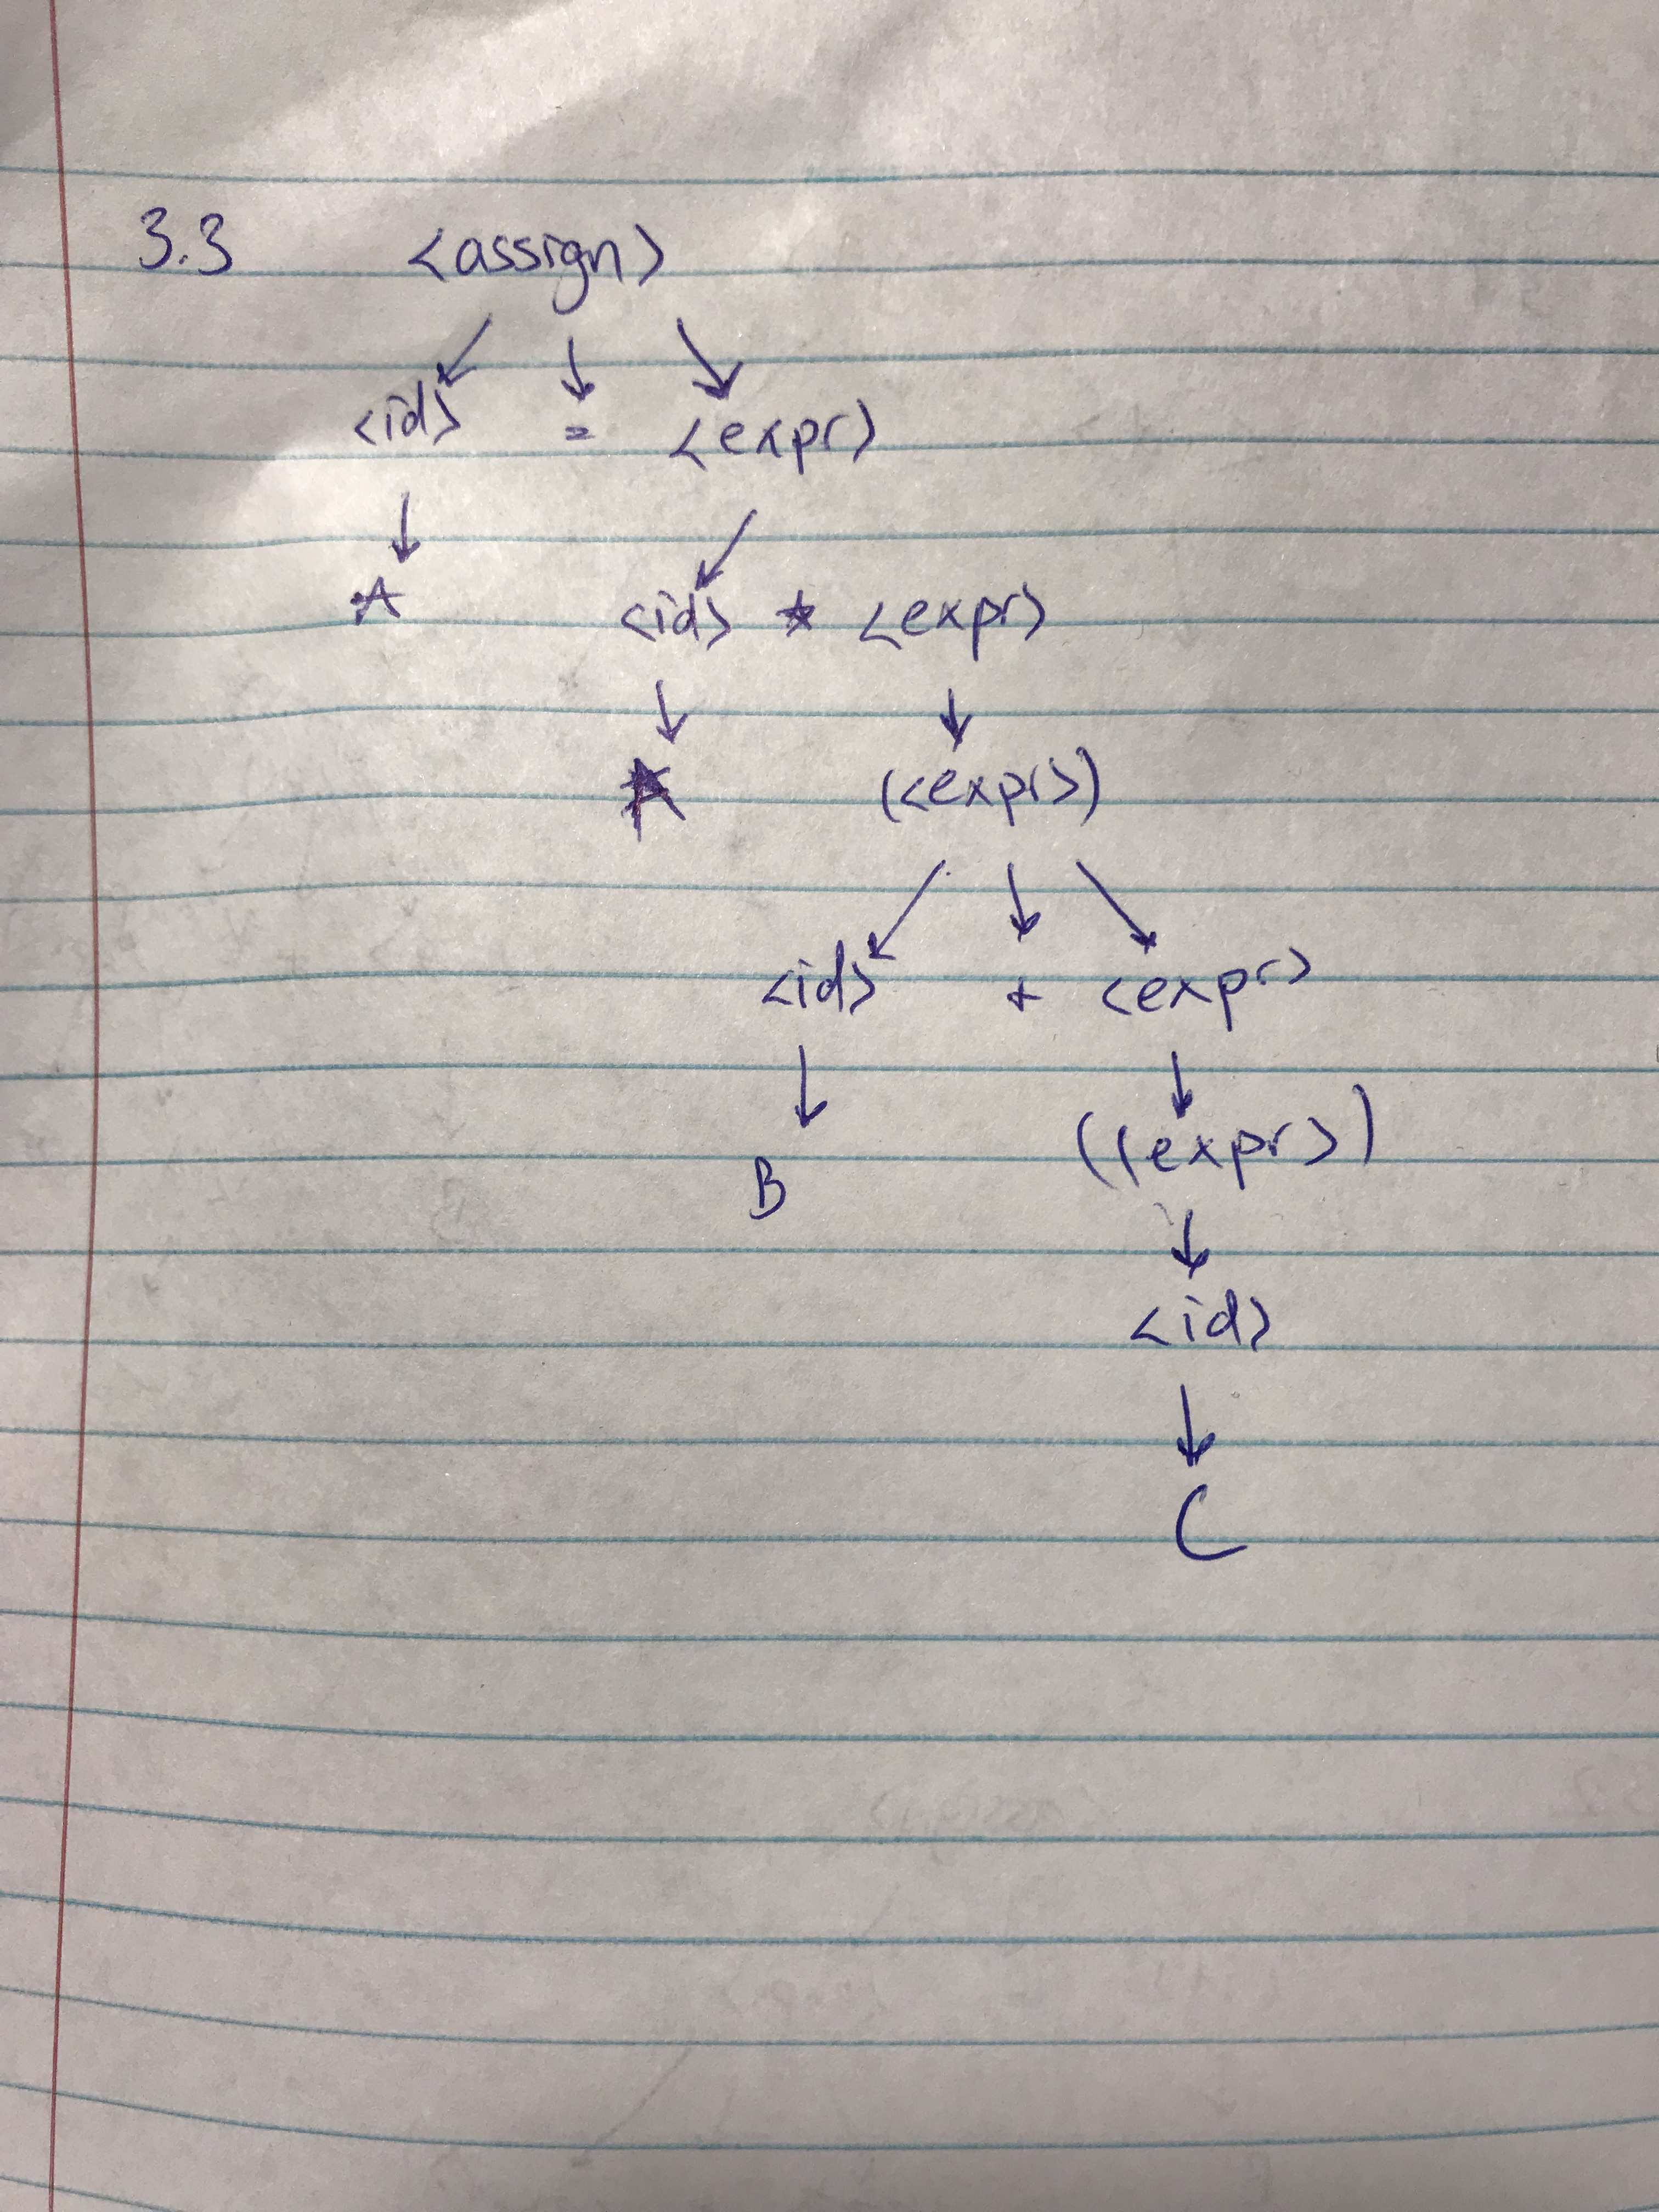 3.3 <assign>
<id> = <expr>
A <id> * <expr>
A (<expr>)
<id> + <expr>
B (<expr>)
<id>
C